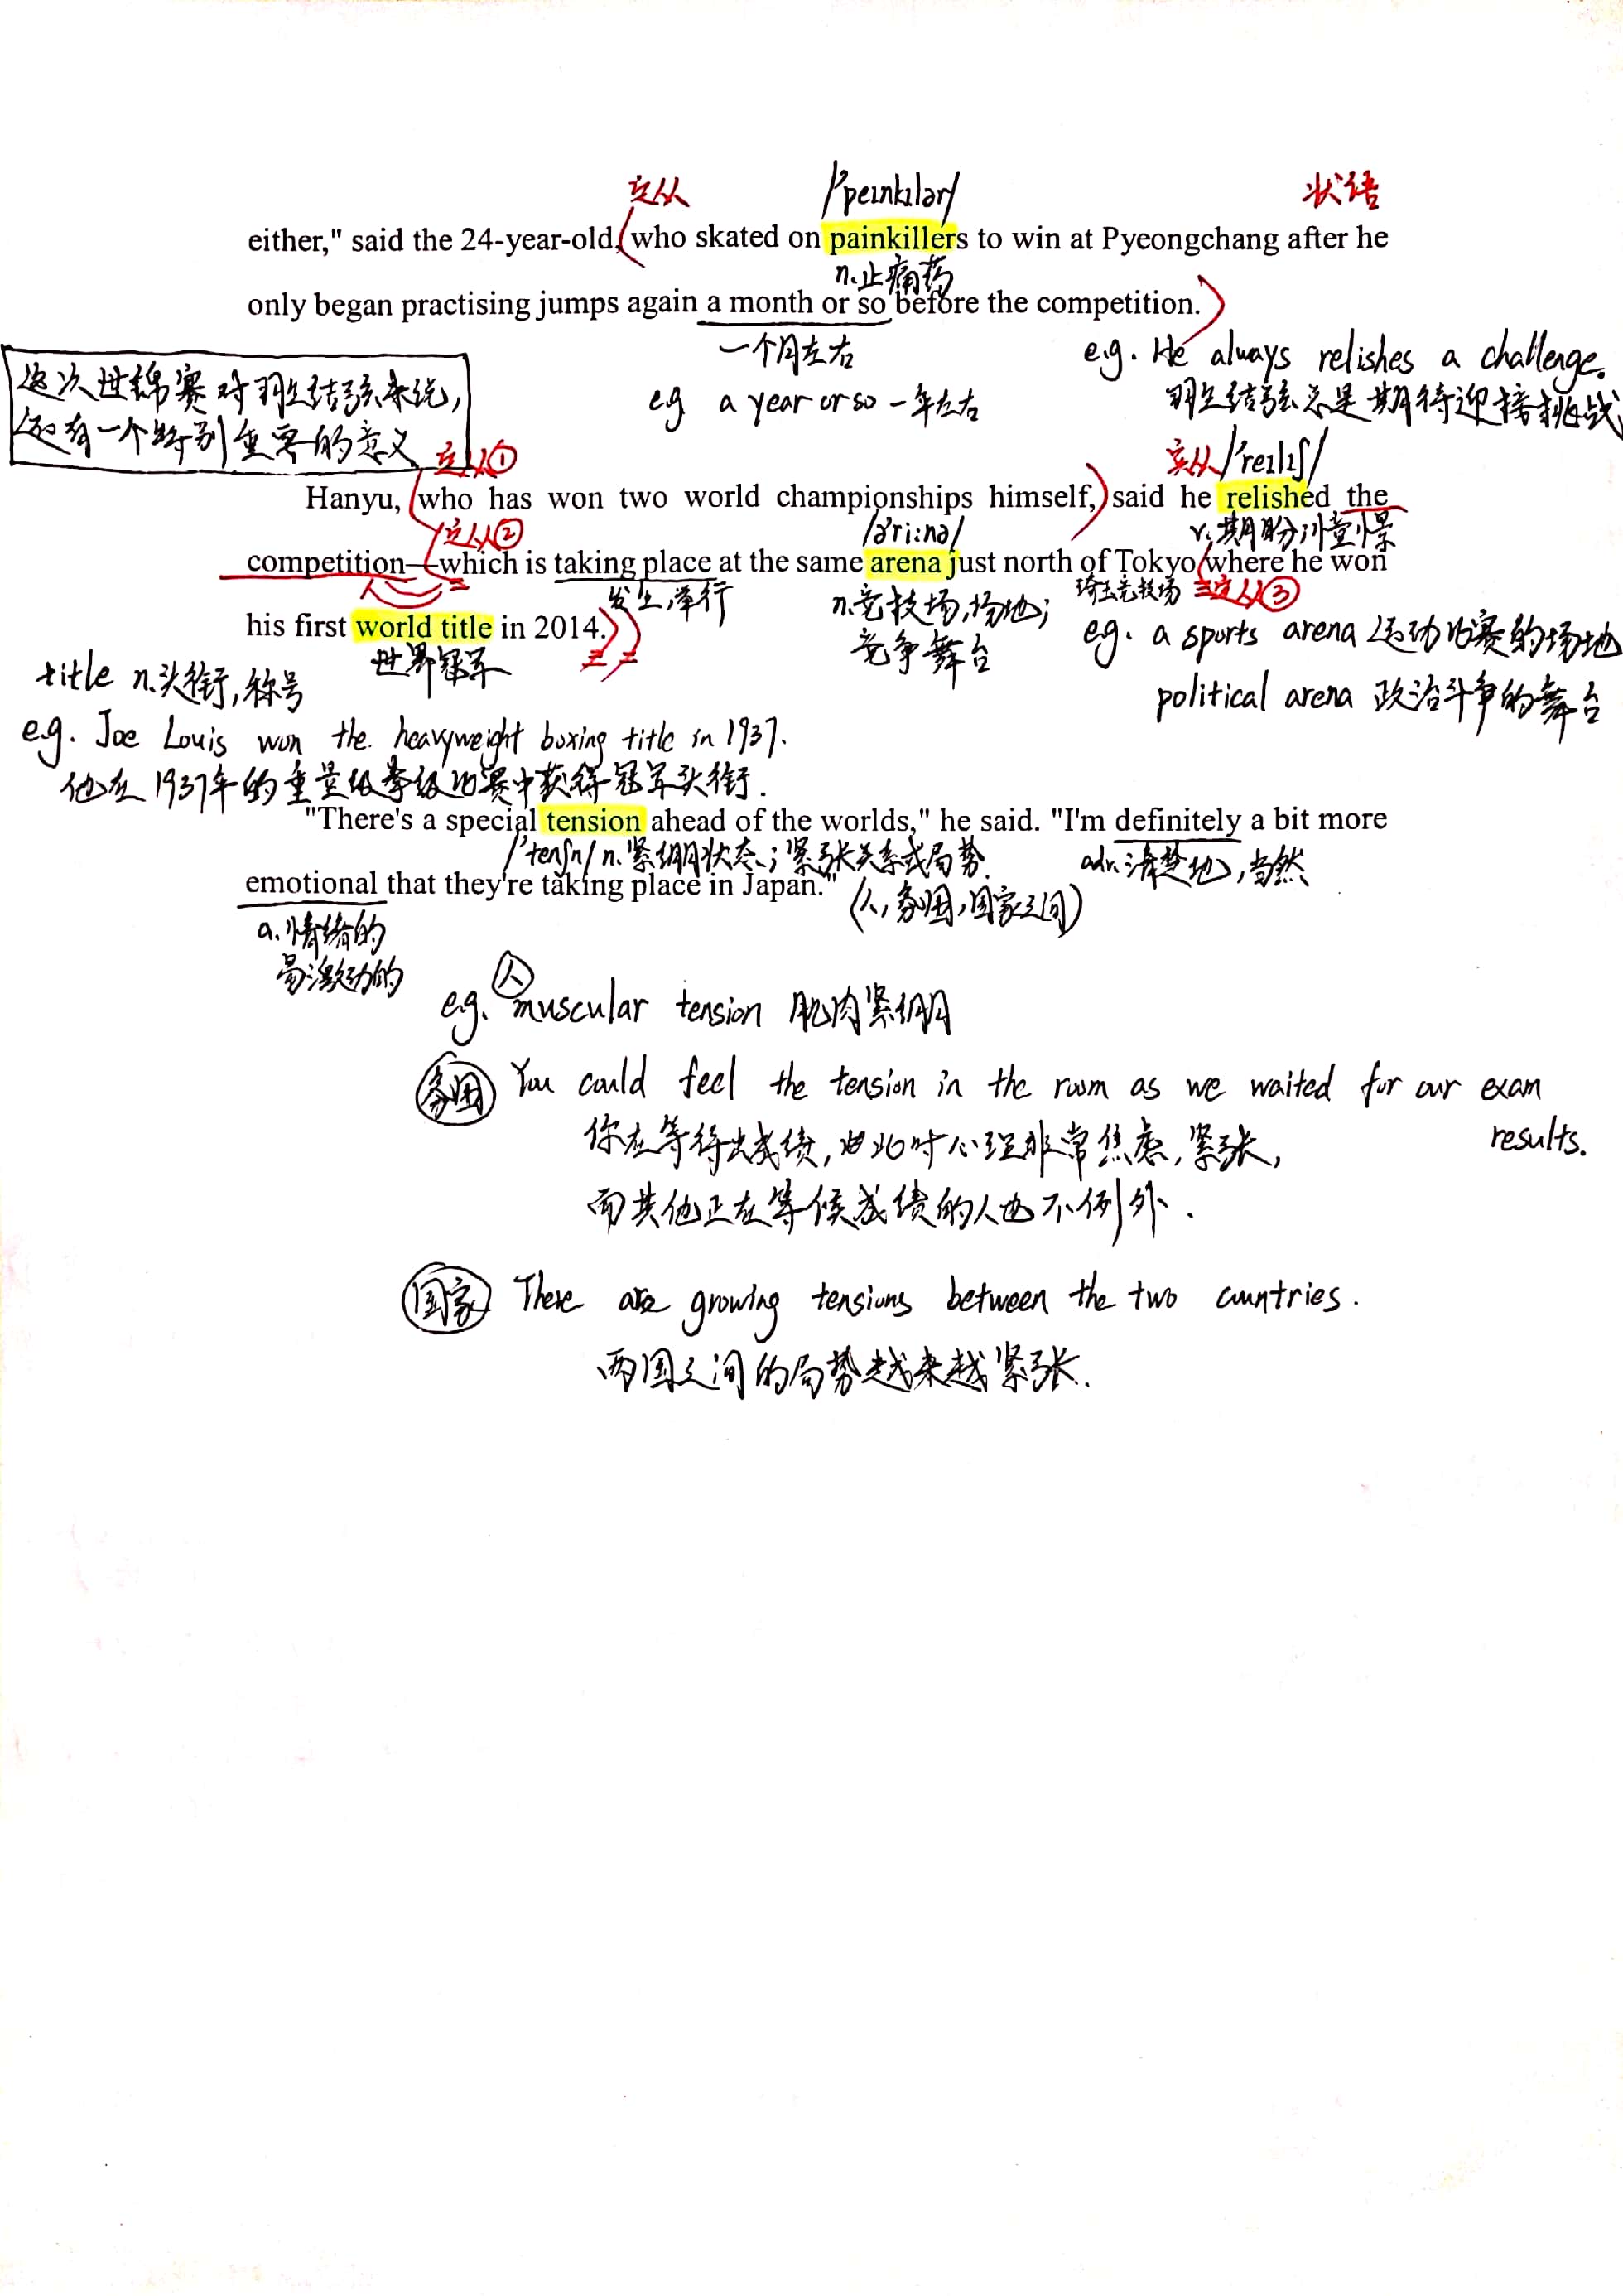 定从 /'peɪnkɪlər/ 状语
either," said the 24-year-old, who skated on painkillers to win at Pyeongchang after he
n.止痛药
only began practising jumps again a month or so before the competition.
一个月左右
e.g. He always relishes a challenge.
羽生结弦总是期待迎接挑战
eg a year or so 一年左右
这次世锦赛对羽生结弦来说,
还有一个特别重要的意义
定从① 宾从 /'relɪʃ/
Hanyu, who has won two world championships himself, said he relished the
定从② /ə'ri:nə/ v.期盼;憧憬
competition—which is taking place at the same arena just north of Tokyo where he won
发生,举行 n.竞技场,场地; 埼玉竞技场 定从③
his first world title in 2014.
世界冠军 竞争舞台
eg. a sports arena 运动比赛的场地
political arena 政治斗争的舞台
title n.头衔,称号
e.g. Joe Louis won the heavyweight boxing title in 1937.
他在1937年的重量级拳级比赛中获得冠军头衔.
"There's a special tension ahead of the worlds," he said. "I'm definitely a bit more
/'tenʃn/ n.紧绷状态;紧张关系或局势. adv.清楚地,当然
emotional that they're taking place in Japan."
(人,氛围,国家之间)
a.情绪的
易激动的
人
e.g. muscular tension 肌肉紧绷
氛围 You could feel the tension in the room as we waited for our exam
results.
你在等待出成绩,此时心理非常焦虑,紧张,
而其他正在等候成绩的人也不例外.
国家 There are growing tensions between the two countries.
两国之间的局势越来越紧张.